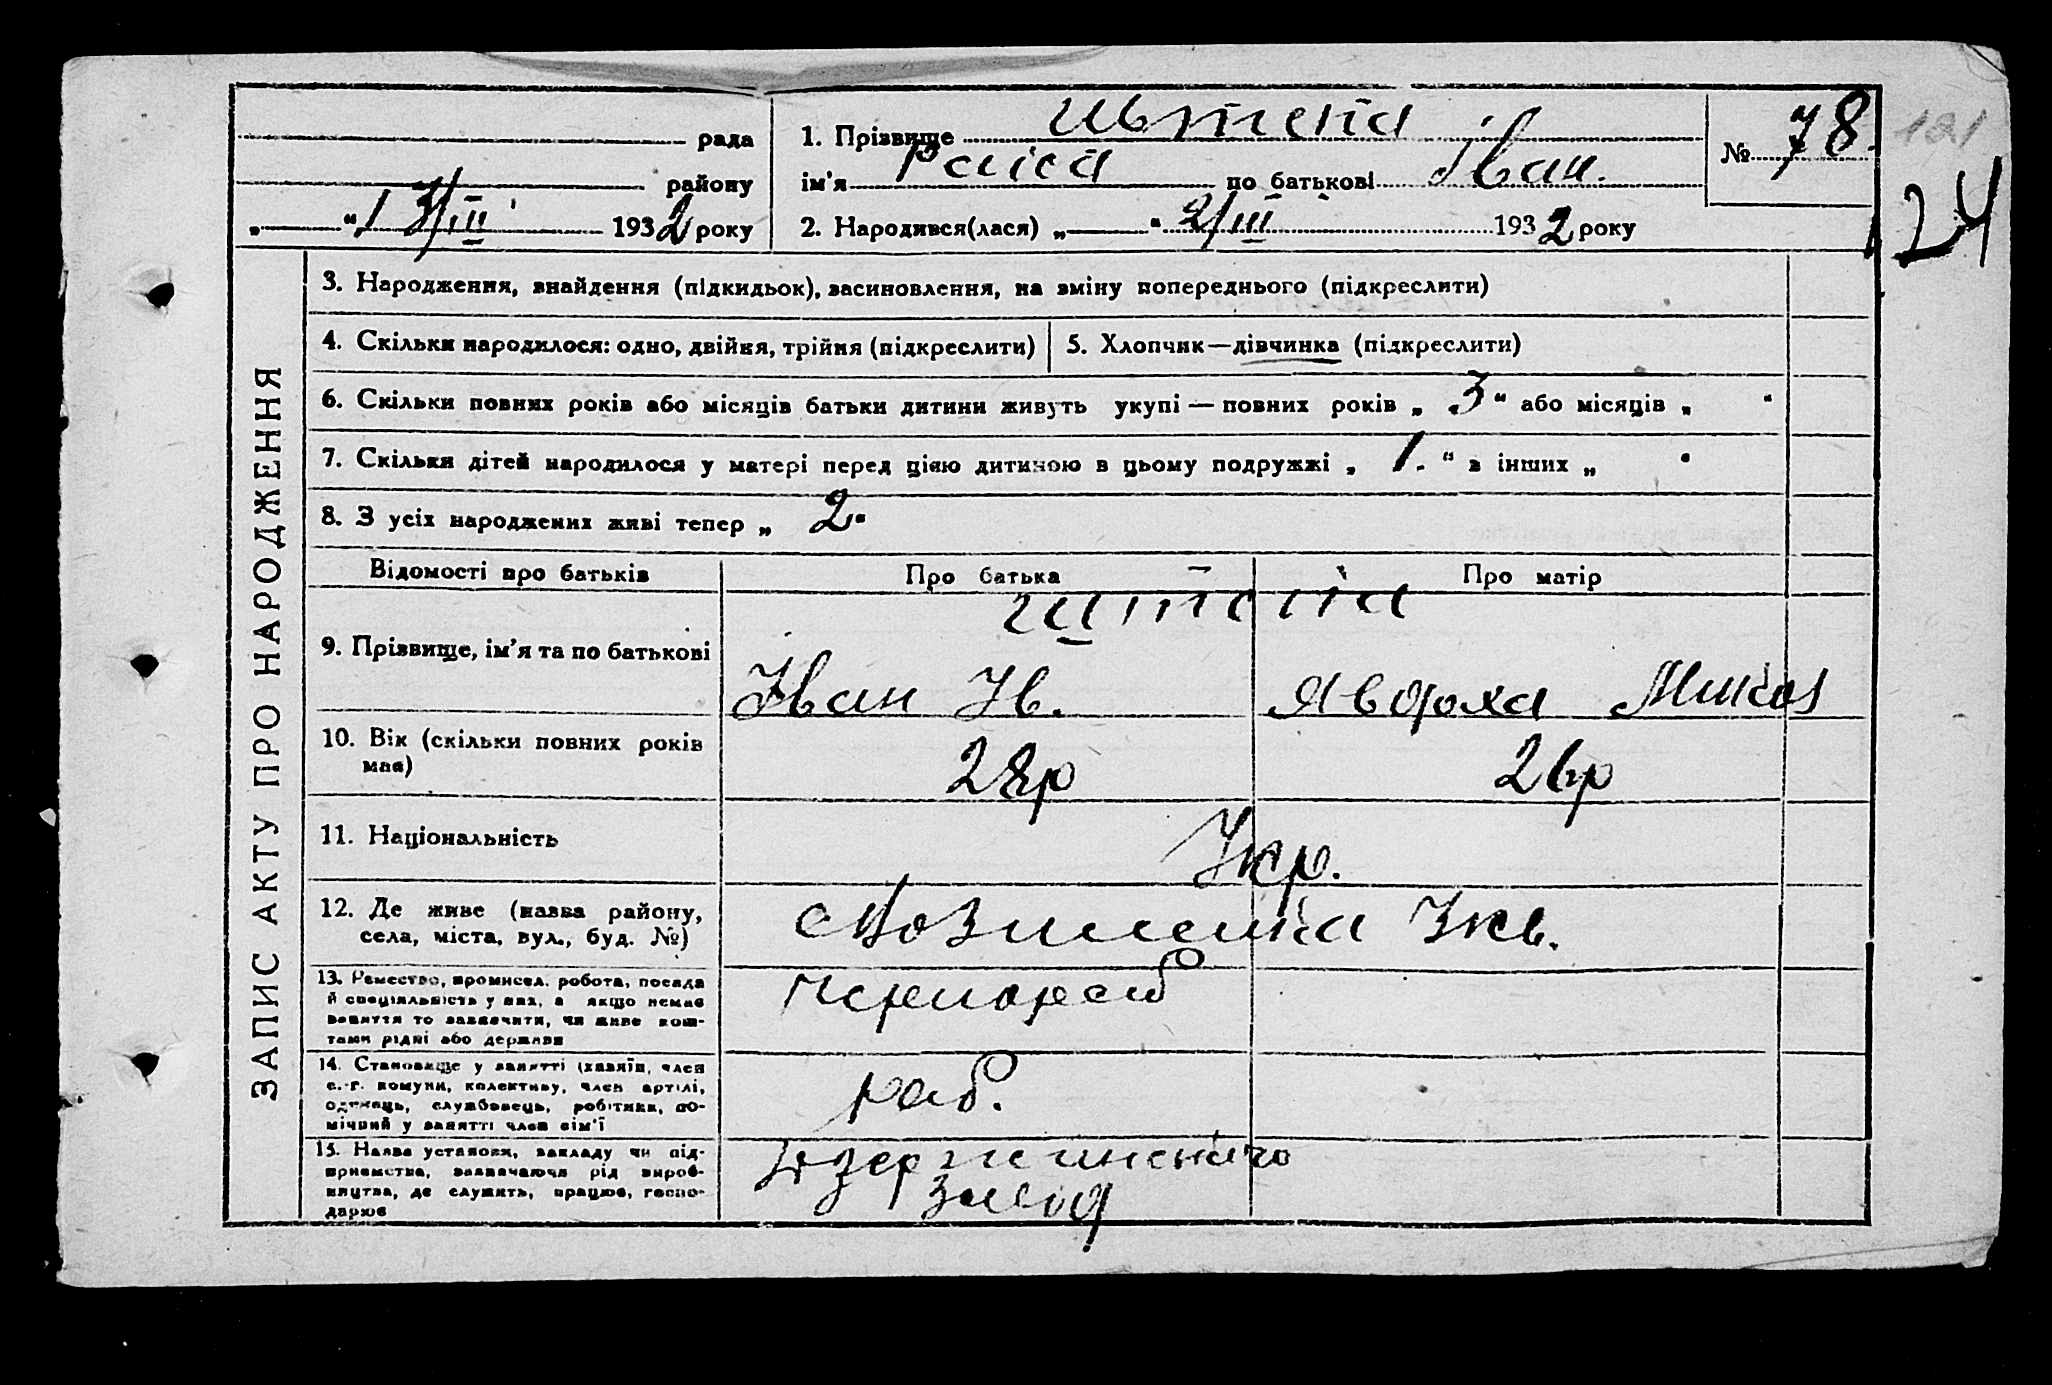 рада
району
„ “ 13/III 1932 року
1. Прізвище
ім'я Раіса по батькові Іван.
2. Народився(лася) „ “ 2/III 1932 року
№ 78.
121
124
ЗАПИС АКТУ ПРО НАРОДЖЕННЯ
3. Народження, знайдення (підкидьок), засиновлення, на зміну попереднього (підкреслити)
4. Скільки народилося: одно, двійня, трійня (підкреслити)
5. Хлопчик—дівчинка (підкреслити)
6. Скільки повних років або місяців батьки дитини живуть укупі — повних років „ 3 “ або місяців „ “
7. Скільки дітей народилося у матері перед цією дитиною в цьому подружжі „ 1. “ в інших „ “
8. З усіх народжених живі тепер „ 2 “
Відомості про батьків
Про батька
Про матір
9. Прізвище, ім'я та по батькові
Іван Ів.
10. Вік (скільки повних років
має)
28р
26р
11. Національність
Укр.
12. Де живе (назва району,
села, міста, вул., буд. №)
13. Ремество, промисел, робота, посада
й спеціяльність у них, а якщо немає
заняття то зазначити, чи живе кош-
тами рідні або держави
Чернораб
14. Становище у занятті (хазяїн, член
с.-г. комуни, колективу, член артілі,
одинець, службовець, робітник, по-
мічний у занятті член сім'ї
раб.
15. Назва установи, закладу чи під-
приємства, зазначаючи рід вироб-
ництва, де служить, працює, госпо-
дарює
Дзержинського
завод